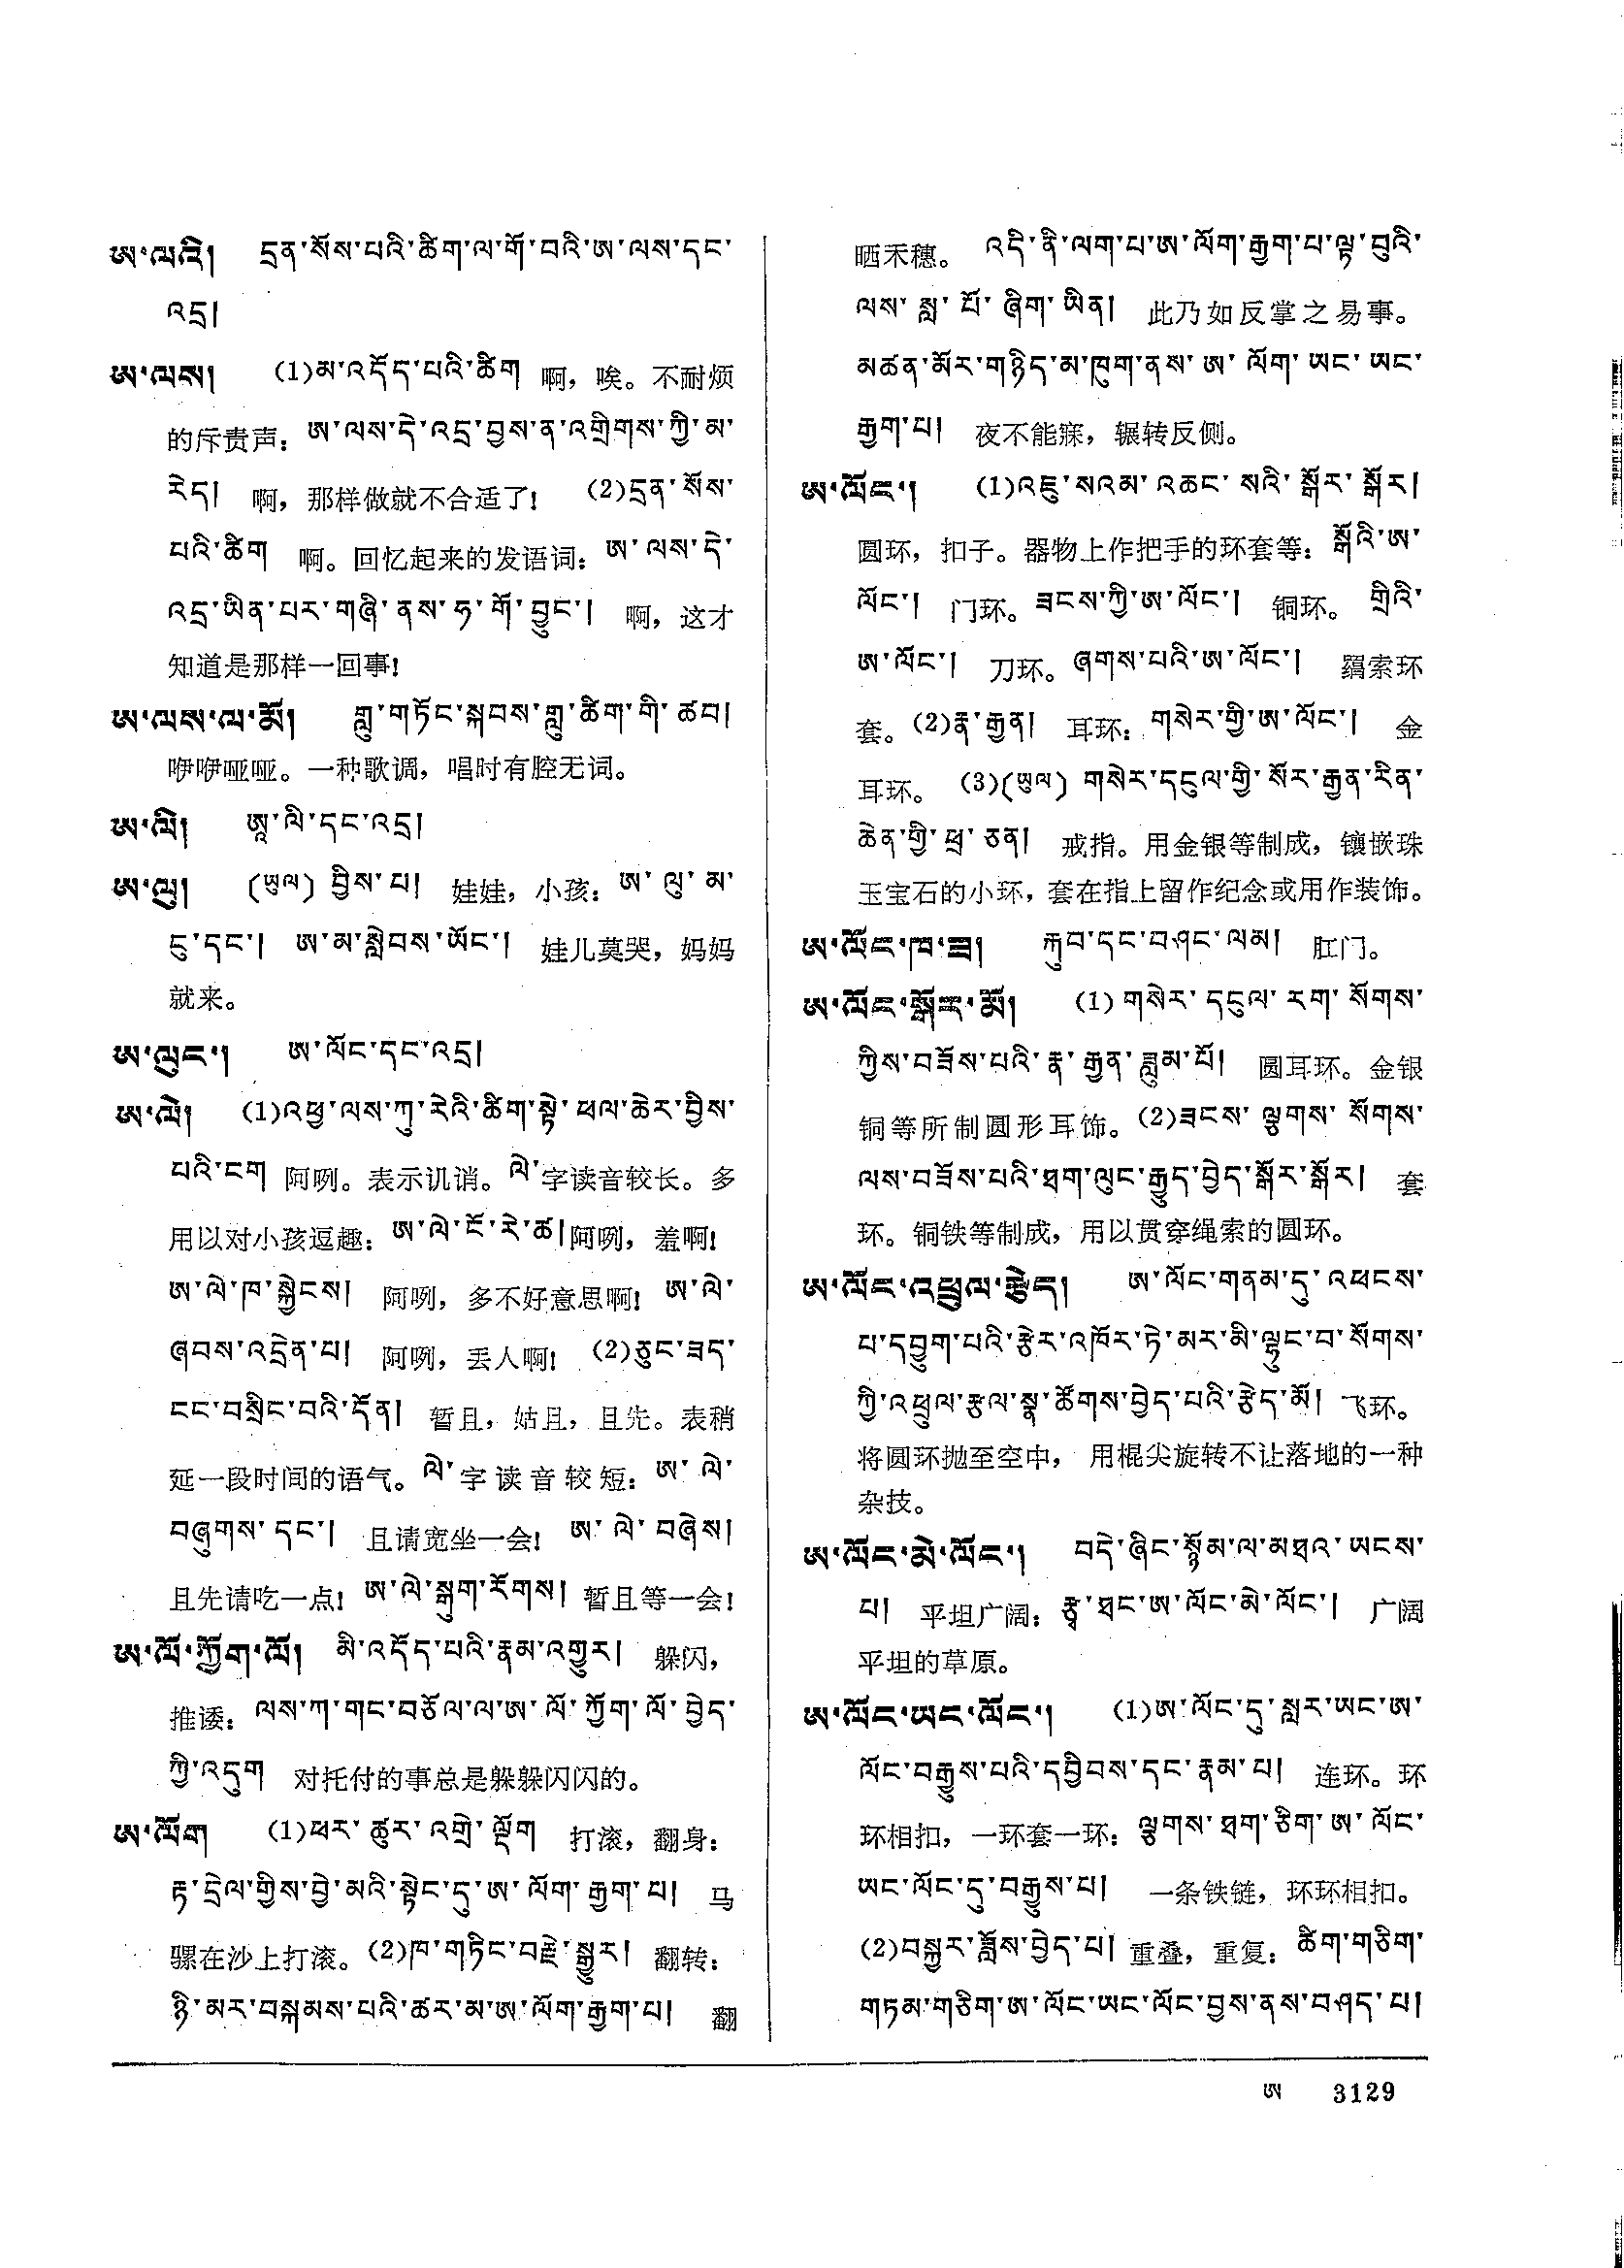 ཨ་ལའི། དྲན་སོས་པའི་ཚིག་ལ་གོ་བའི་ཨ་ལས་དང་
འདྲ།
ཨ་ལས། (1)མ་འདོད་པའི་ཚིག 啊，唉。不耐烦
的斥责声：ཨ་ལས་དེ་འདྲ་བྱས་ན་འགྲིགས་ཀྱི་མ་
རེད། 啊，那样做就不合适了! (2)དྲན་སོས་
པའི་ཚིག 啊。回忆起来的发语词：ཨ་ལས་དེ་
འདྲ་ཡིན་པར་གཞི་ནས་ཧ་གོ་བྱུང་། 啊，这才
知道是那样一回事!
ཨ་ལས་ལ་མོ། གླུ་གཏོང་སྐབས་གླུ་ཚིག་གི་ཚབ།
咿咿哑哑。一种歌调，唱时有腔无词。
ཨ་ལི། ཨཱ་ལི་དང་འདྲ།
ཨ་ལུ། (ཡུལ) བྱིས་པ། 娃娃，小孩：ཨ་ལུ་མ་
ངུ་དང་། ཨ་མ་སླེབས་ཡོང་། 娃儿莫哭，妈妈
就来。
ཨ་ལུང་། ཨ་ལོང་དང་འདྲ།
ཨ་ལེ། (1)འཕྱ་ལས་ཀུ་རེའི་ཚིག་སྟེ་ཕལ་ཆེར་བྱིས་
པའི་ངག 阿咧。表示讥诮。ལེ་字读音较长。多
用以对小孩逗趣：ཨ་ལེ་ངོ་རེ་ཚ།阿咧，羞啊!
ཨ་ལེ་ཁ་སྐྱེངས། 阿咧，多不好意思啊! ཨ་ལེ་
ཞབས་འདྲེན་པ། 阿咧，丢人啊! (2)ཅུང་ཟད་
ངང་བསྲིང་བའི་དོན། 暂且，姑且，且先。表稍
延一段时间的语气。ལེ་字读音较短：ཨ་ལེ་
བཞུགས་དང་། 且请宽坐一会! ཨ་ལེ་བཞེས།
且先请吃一点! ཨ་ལེ་སྒུག་རོགས། 暂且等一会!
ཨ་ལོ་ཀྱོག་ལོ། མི་འདོད་པའི་རྣམ་འགྱུར། 躲闪，
推诿：ལས་ཀ་གང་བཅོལ་ལ་ཨ་ལོ་ཀྱོག་ལོ་བྱེད་
ཀྱི་འདུག 对托付的事总是躲躲闪闪的。
ཨ་ལོག (1)ཕར་ཚུར་འགྲེ་ལྡོག 打滚，翻身：
རྟ་དྲེལ་གྱིས་བྱེ་མའི་སྟེང་དུ་ཨ་ལོག་རྒྱག་པ། 马
骡在沙上打滚。(2)ཁ་གཏིང་བརྗེ་སྒྱུར། 翻转：
ཉི་མར་བསྐམས་པའི་ཚར་མ་ཨ་ལོག་རྒྱག་པ། 翻
晒禾穗。 འདི་ནི་ལག་པ་ཨ་ལོག་རྒྱག་པ་ལྟ་བུའི་
ལས་སླ་པོ་ཞིག་ཡིན། 此乃如反掌之易事。
མཚན་མོར་གཉིད་མ་ཁུག་ནས་ཨ་ལོག་ཡང་ཡང་
རྒྱག་པ། 夜不能寐，辗转反侧。
ཨ་ལོང་། (1)འཇུ་སའམ་འཆང་སའི་སྒོར་སྒོར།
圆环，扣子。器物上作把手的环套等：སྒོའི་ཨ་
ལོང་། 门环。ཟངས་ཀྱི་ཨ་ལོང་། 铜环。 གྲིའི་
ཨ་ལོང་། 刀环。ཞགས་པའི་ཨ་ལོང་། 羂索环
套。(2)རྣ་རྒྱན། 耳环：གསེར་གྱི་ཨ་ལོང་། 金
耳环。 (3)(ཡུལ) གསེར་དངུལ་གྱི་སོར་རྒྱན་རིན་
ཆེན་གྱི་ཕྲ་ཅན། 戒指。用金银等制成，镶嵌珠
玉宝石的小环，套在指上留作纪念或用作装饰。
ཨ་ལོང་ཁ་ཟ། རྐུབ་དང་བཤང་ལམ། 肛门。
ཨ་ལོང་སྒོར་མོ། (1)གསེར་དངུལ་རག་སོགས་
ཀྱིས་བཟོས་པའི་རྣ་རྒྱན་ཟླུམ་པོ། 圆耳环。金银
铜等所制圆形耳饰。(2)ཟངས་ལྕགས་སོགས་
ལས་བཟོས་པའི་ཐག་ལུང་རྒྱུད་བྱེད་སྒོར་སྒོར། 套
环。铜铁等制成，用以贯穿绳索的圆环。
ཨ་ལོང་འཕྲུལ་རྩེད། ཨ་ལོང་གནམ་དུ་འཕངས་
པ་དབྱུག་པའི་རྩེར་འཁོར་ཏེ་མར་མི་ལྷུང་བ་སོགས་
ཀྱི་འཕྲུལ་རྩལ་སྣ་ཚོགས་བྱེད་པའི་རྩེད་མོ། 飞环。
将圆环抛至空中，用棍尖旋转不让落地的一种
杂技。
ཨ་ལོང་མེ་ལོང་། བདེ་ཞིང་སྙོམ་ལ་མཐའ་ཡངས་
པ། 平坦广阔：རྩྭ་ཐང་ཨ་ལོང་མེ་ལོང་། 广阔
平坦的草原。
ཨ་ལོང་ཡང་ལོང་། (1)ཨ་ལོང་དུ་སླར་ཡང་ཨ་
ལོང་བརྒྱུས་པའི་དབྱིབས་དང་རྣམ་པ། 连环。环
环相扣，一环套一环：ལྕགས་ཐག་ཅིག་ཨ་ལོང་
ཡང་ལོང་དུ་བརྒྱུས་པ། 一条铁链，环环相扣。
(2)བསྐྱར་ཟློས་བྱེད་པ། 重叠，重复：ཚིག་གཅིག་
གཏམ་གཅིག་ཨ་ལོང་ཡང་ལོང་བྱས་ནས་བཤད་པ།
ཨ 3129